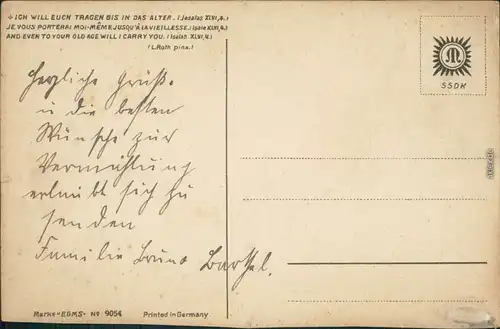 ICH WILL EUCH TRAGEN BIS IN DAS ALTER. (Jesaias XLVI, 4.)
JE VOUS PORTERAI MOI-MÊME JUSQU'À LA VIEILLESSE. (Isaïe XLVI, 4.)
AND EVEN TO YOUR OLD AGE WILL I CARRY YOU. (Isaiah XLVI, 4.)
(L. Roth pinx.)
SSDK
Herzliche Grüße
u die besten
Wünsche zur
Vermählung
erlaubt sich zu
senden
Familie Bruno Barthel.
Marke »EGMS« No 9054 Printed in Germany